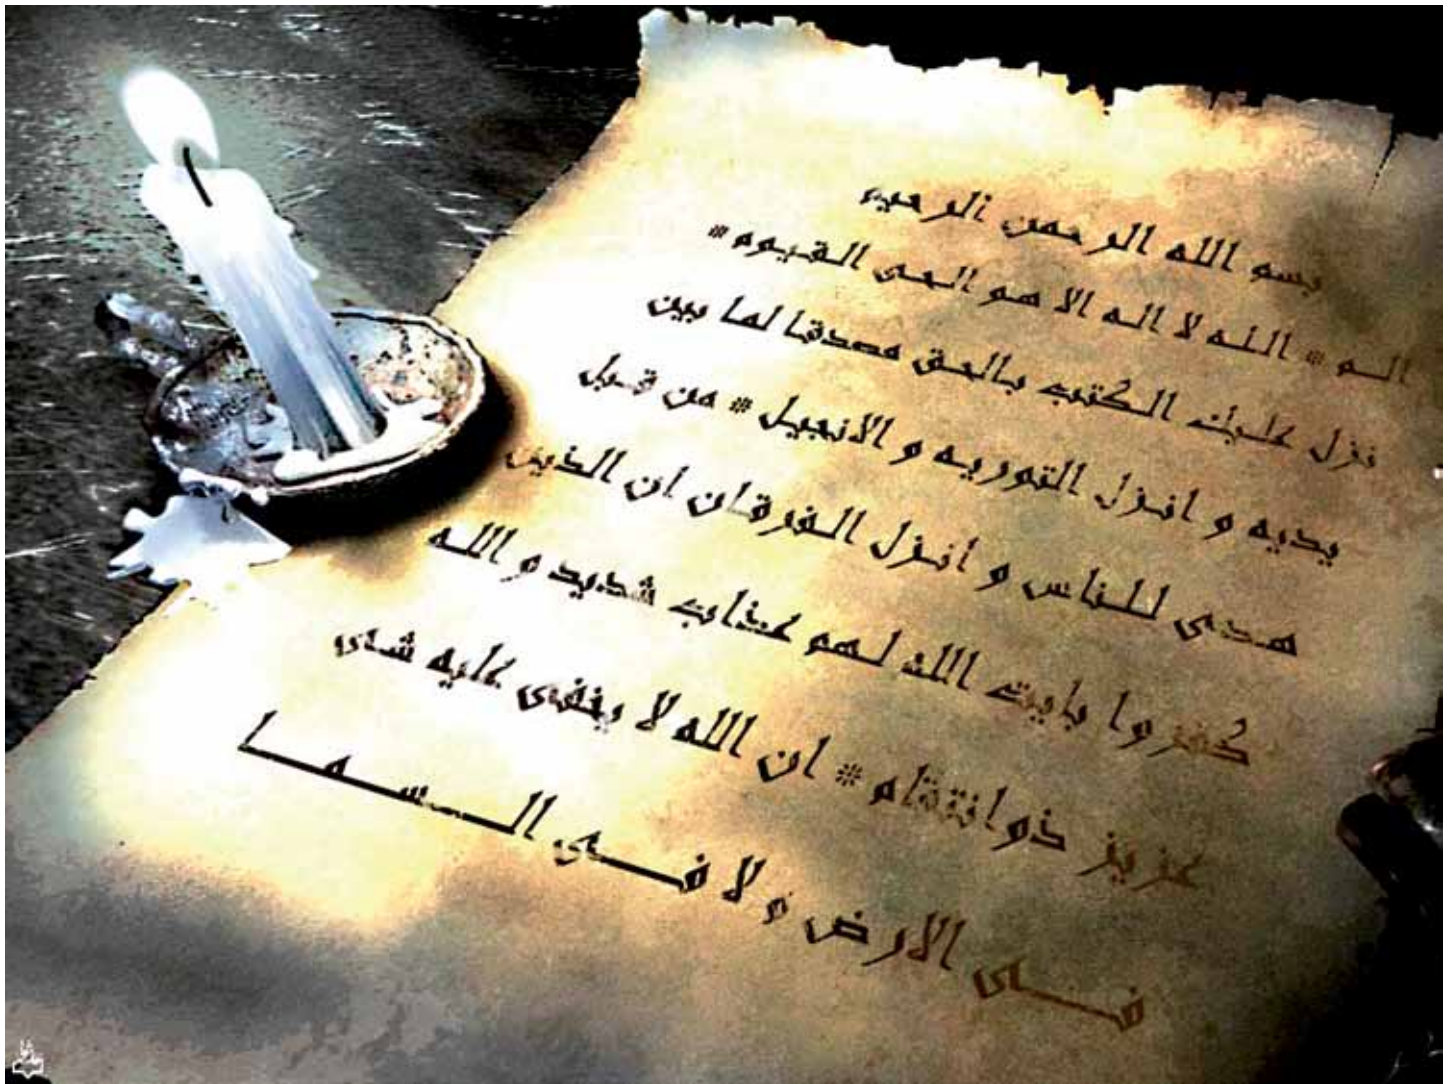 بسم الله الرحمن الرحيم
الم * الله لا اله الا هو الحى القيوم *
نزل عليك الكتب بالحق مصدقا لما بين
يديه و انزل التوريه و الانجيل * من قبل
هدى للناس و انزل الفرقان ان الذين
كفروا بايت الله لهم عذاب شديد و الله
عزيز ذوانتقام * ان الله لا يخفى عليه شئ
فى الارض و لا فى السما